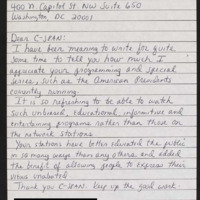 400 N. Capitol St. NW Suite 650
Washington, DC 20001
Dear C-SPAN:
I have been meaning to write for quite
some time to tell you how much I
appreciate your programming and special
series, such as the American Presidents
currently running.
It is so refreshing to be able to watch
such unbiased, educational, informative and
entertaining programs rather than those on
the network stations.
Your stations have better educated the public
in so many ways than any others and added
the benefit of allowing people to express their
views unabated.
Thank you C-SPAN. Keep up the good work.